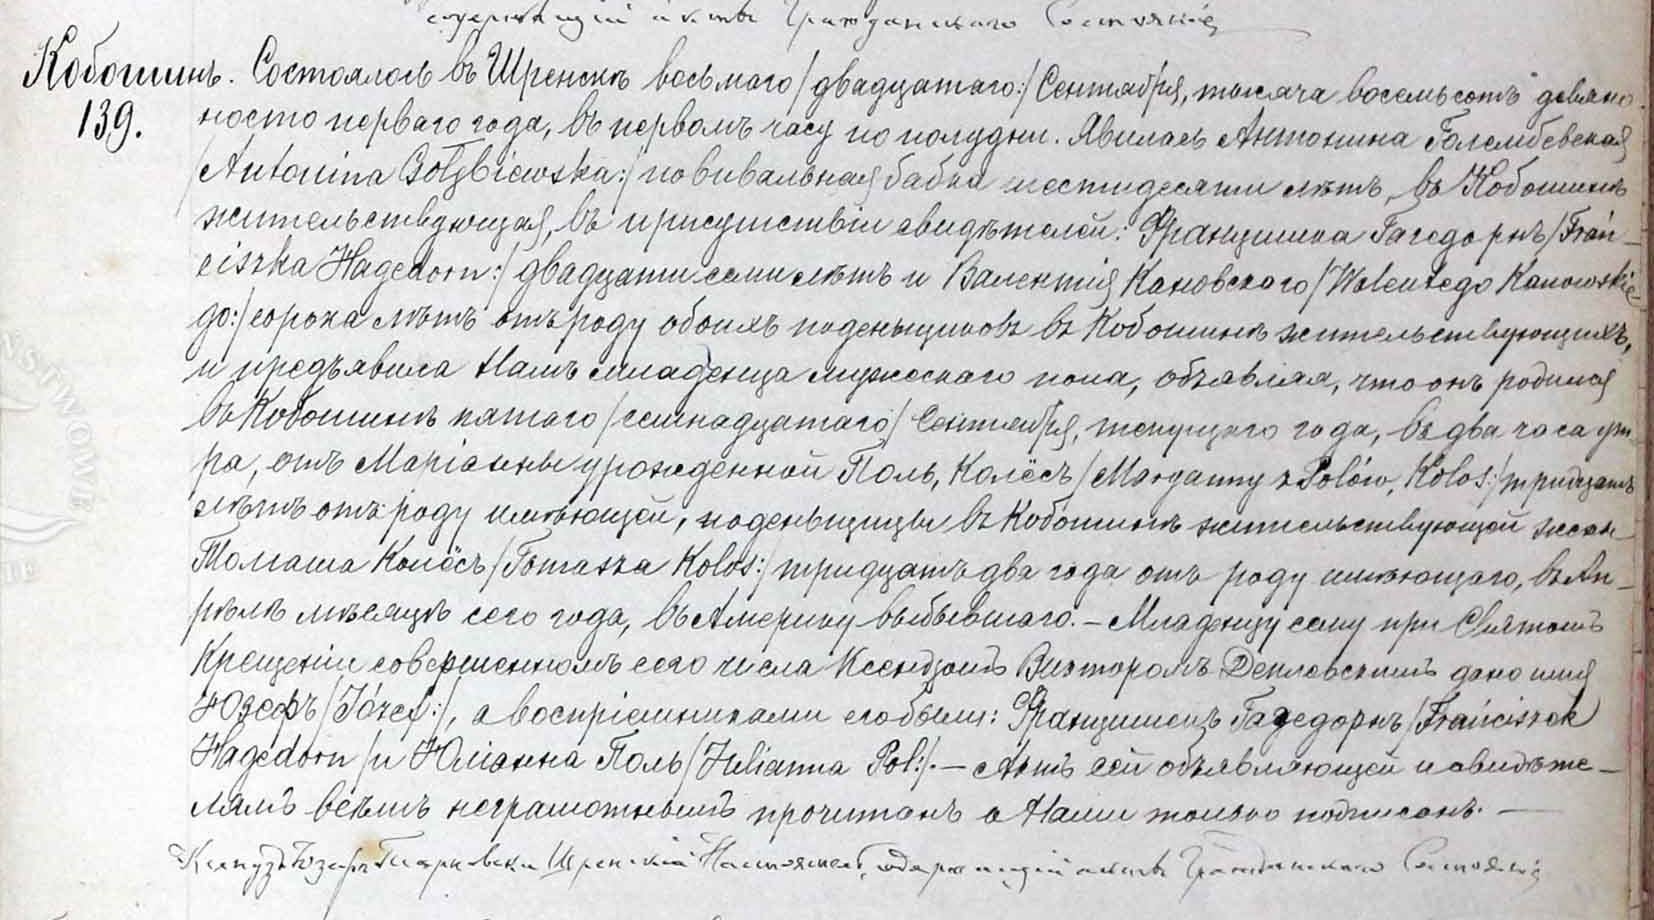 содержащій акты Гражданскаго Состоянія
Кобошинъ. Состоялось въ Шренскѣ восьмаго /двадцатаго:/ Сентября, тысяча восемьсотъ девяно-
139. ностo перваго года, въ первомъ часу по полудни. Явилась Антонина Голембевская
/Antonina Gołębiewska:/ повивальная бабка шестидесяти лѣтъ, въ Кобошинѣ
жительствующая, въ присутствіи свидѣтелей: Францишка Гагедорнъ /Fran-
ciszka Hagedorn:/ двадцати семи лѣтъ и Валентія Кановскаго /Walentego Kanowskie-
go:/ сорока лѣтъ отъ роду обоихъ поденьщиковъ въ Кобошинѣ жительствующихъ,
и предъявила Намъ младенца мужескаго пола, объявляя, что онъ родился
въ Кобошинѣ пятаго /семнадцатаго/ Сентября, текущаго года, въ два часа ут-
ра, отъ Маріанны урожденной Поль, Колёсъ /Maryanny z Polów, Kolos:/ тридцать
лѣтъ отъ роду имѣющей, поденьщицы въ Кобошинѣ жительствующей жены
Томаша Колёсъ /Tomasza Kolos:/ тридцать два года отъ роду имѣющаго, въ Ап-
рѣлѣ мѣсяцѣ сего года, въ Америку выбывшаго. – Младенцу сему при Святомъ
Крещеніи совершенномъ сего числа Ксендзомъ Викторомъ дано имя
Юзефъ /Józef:/, а воспріемниками его были: Францишекъ Гагедорнъ /Franciszek
Hagedorn/ и Юліанна Поль /Julianna Pol:/. – Актъ сей объявляющей и свидѣте-
лямъ всѣмъ неграмотнымъ прочитанъ а Нами только подписанъ. –
Ксендзъ Юзефъ Шренскій Настоятель, содержащій акты Гражданскаго Состоянія
NSTWOWE